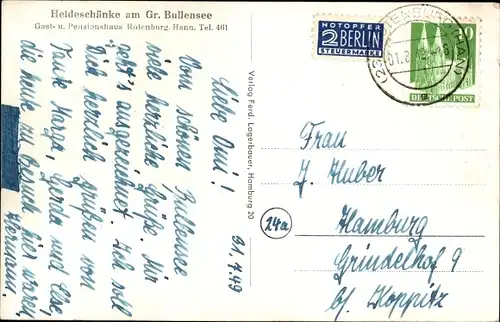 Heideschänke am Gr. Bullensee
Gast- u. Pensionshaus Rotenburg, Hann. Tel. 461
Liebe Omi!
Vom schönen Bullensee
viele herzliche Grüße. Mir
geht's ausgezeichnet. Ich soll
Dich herzlich grüßen von
Tante Marga, Gerda und Else,
die heute zu Besuch hier waren.
Hermann.
31.7.49
Verlag Ferd. Lagerbauer, Hamburg 20
NOTOPFER
2 BERLIN
STEUERMARKE
DEUTSCHE POST
24a
Frau
J. Huber
Hamburg
Grindelhof 9
bf. Koppitz